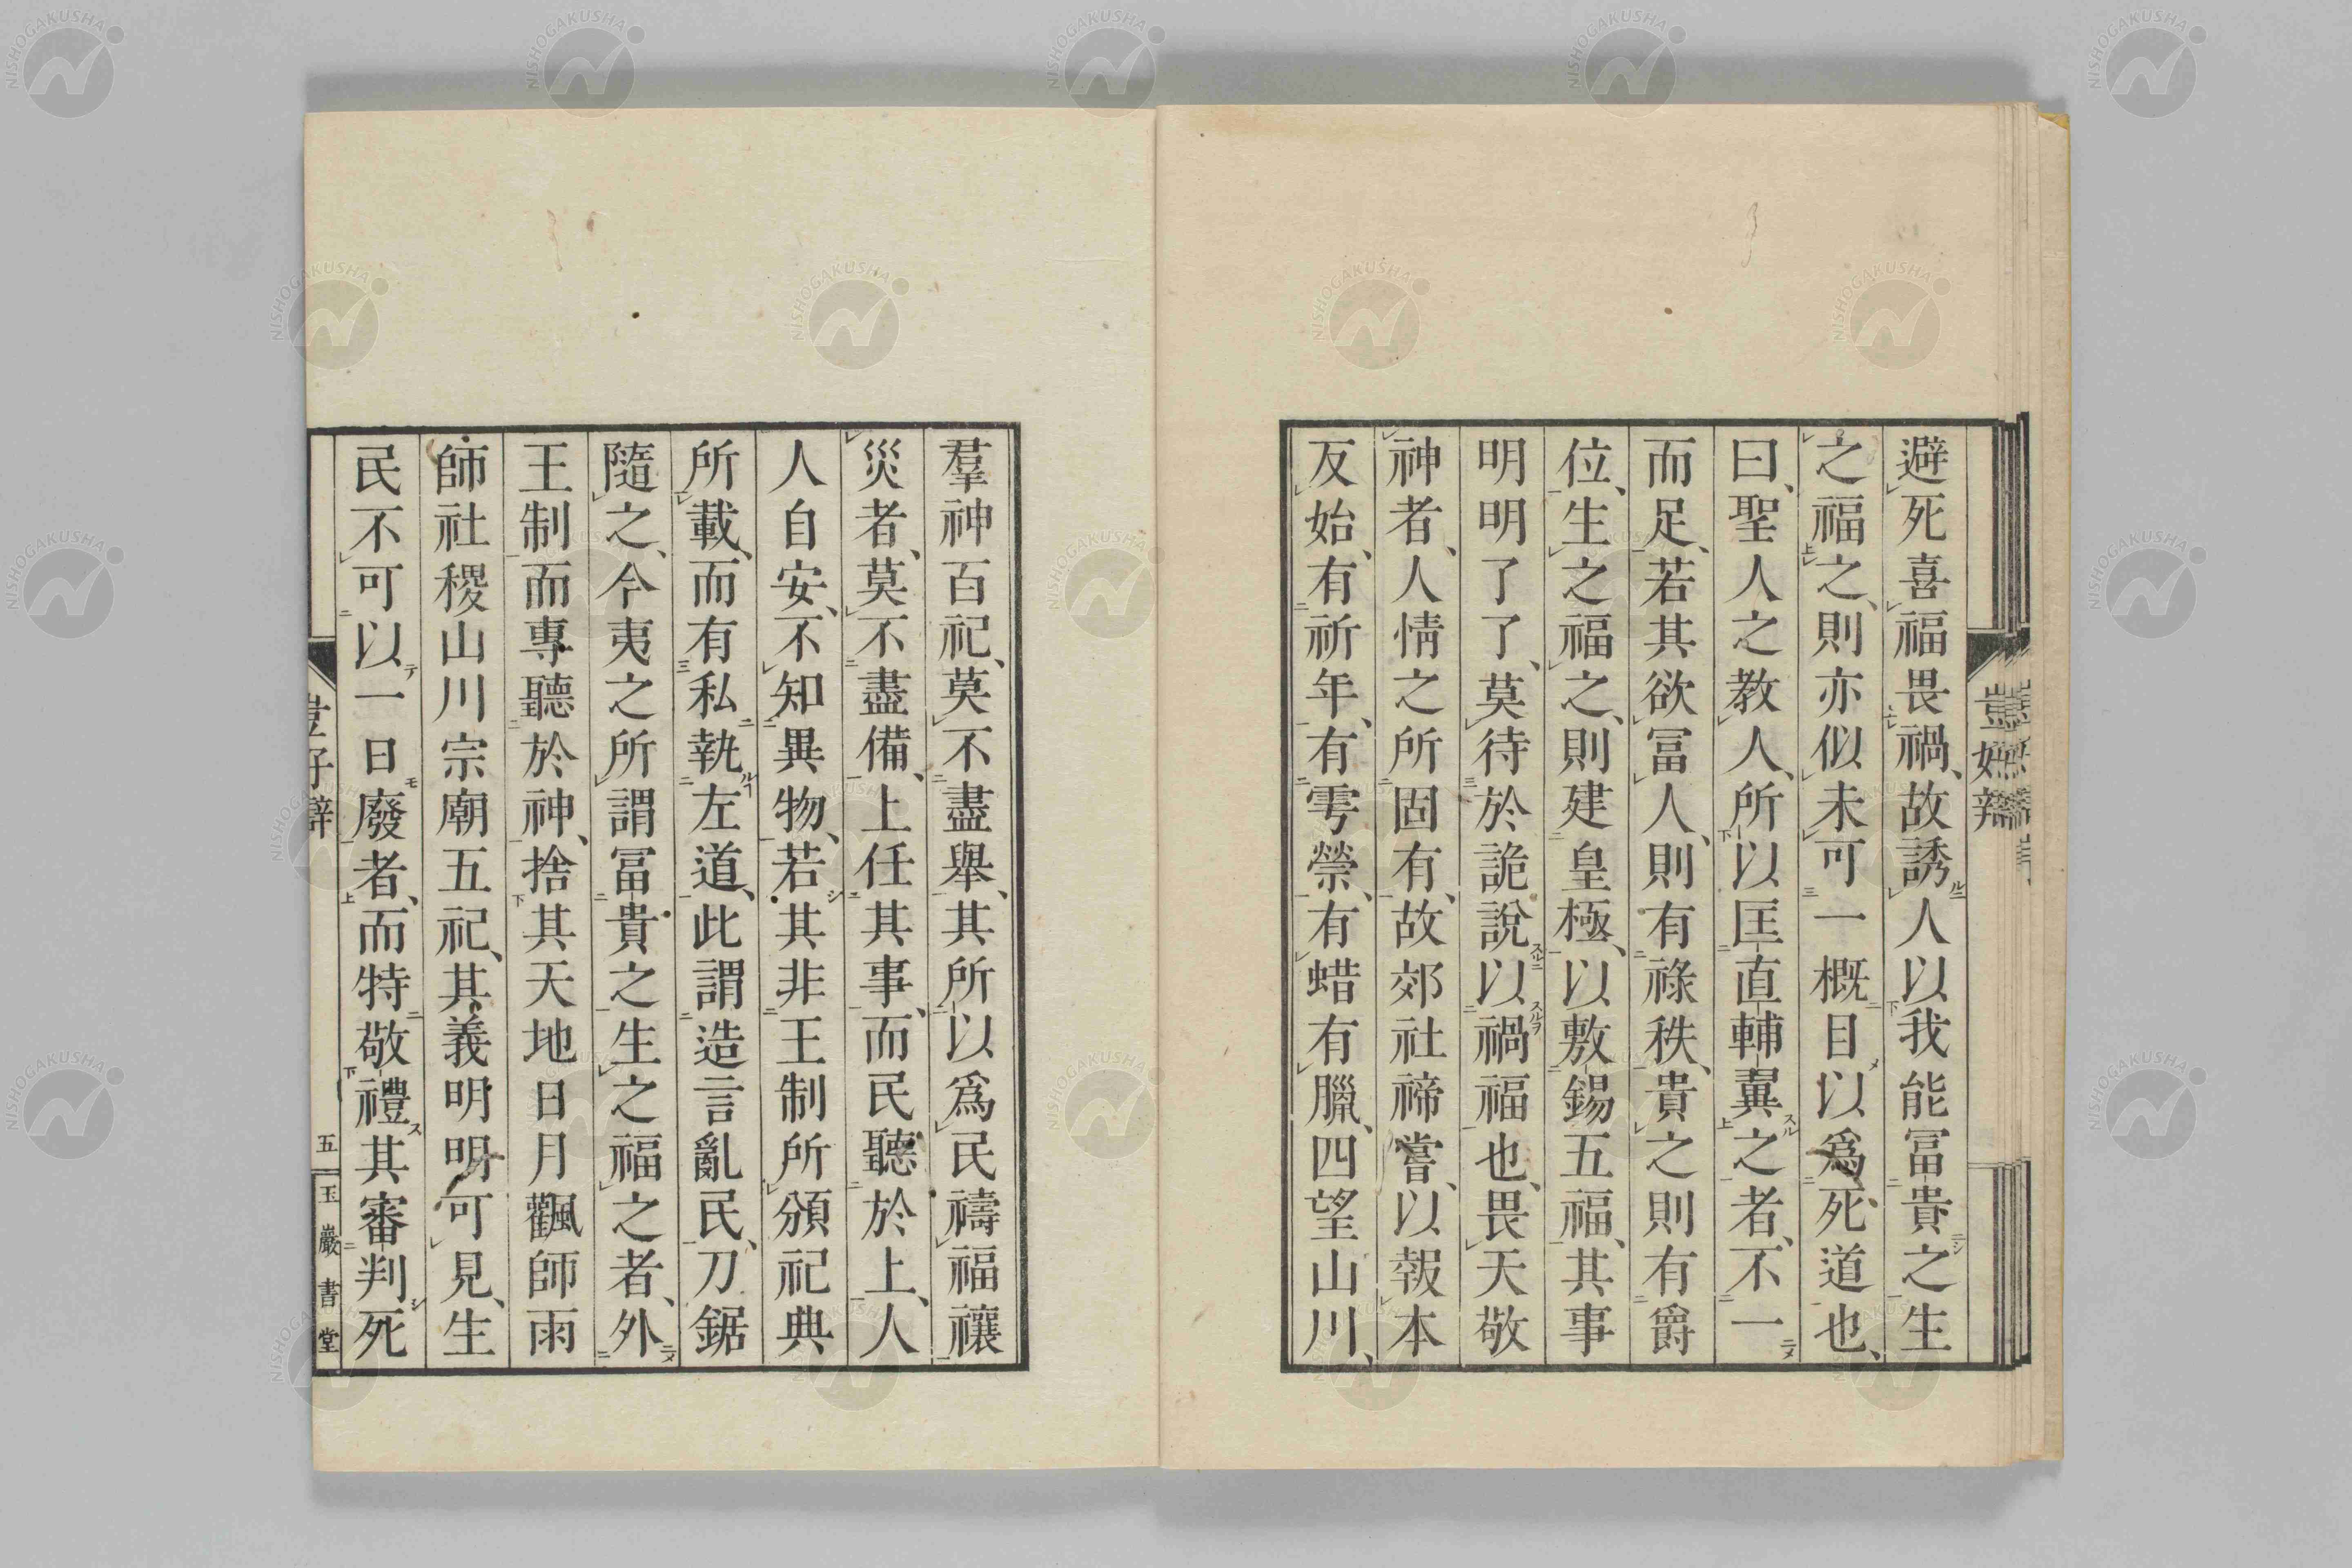 避死喜福畏禍、故誘人以我能冨貴之生
之福之、則亦似未可一概目以爲死道也、
曰、聖人之教人、所以匡直輔翼之者、不一
而足、若其欲冨人、則有祿秩、貴之則有爵
位、生之福之、則建皇極、以敷錫五福、其事
明明了了、莫待於詭說以禍福也、畏天敬
神者、人情之所固有、故郊社禘嘗、以報本
反始、有祈年、有雩禜、有蜡有臘、四望山川、
羣神百祀、莫不盡舉、其所以爲民禱福禳
災者、莫不盡備、上任其事、而民聽於上、人
人自安、不知異物、若其非王制所頒祀典
所載、而有私執左道、此謂造言亂民、刀鋸
隨之、今夷之所謂冨貴之生之福之者、外
王制而專聽於神、捨其天地日月飌師雨
師社稷山川宗廟五祀、其義明明可見、生
民不可以一日廢者、而特敬禮其審判死
五
玉巖書堂
NISHOGAKUSHA